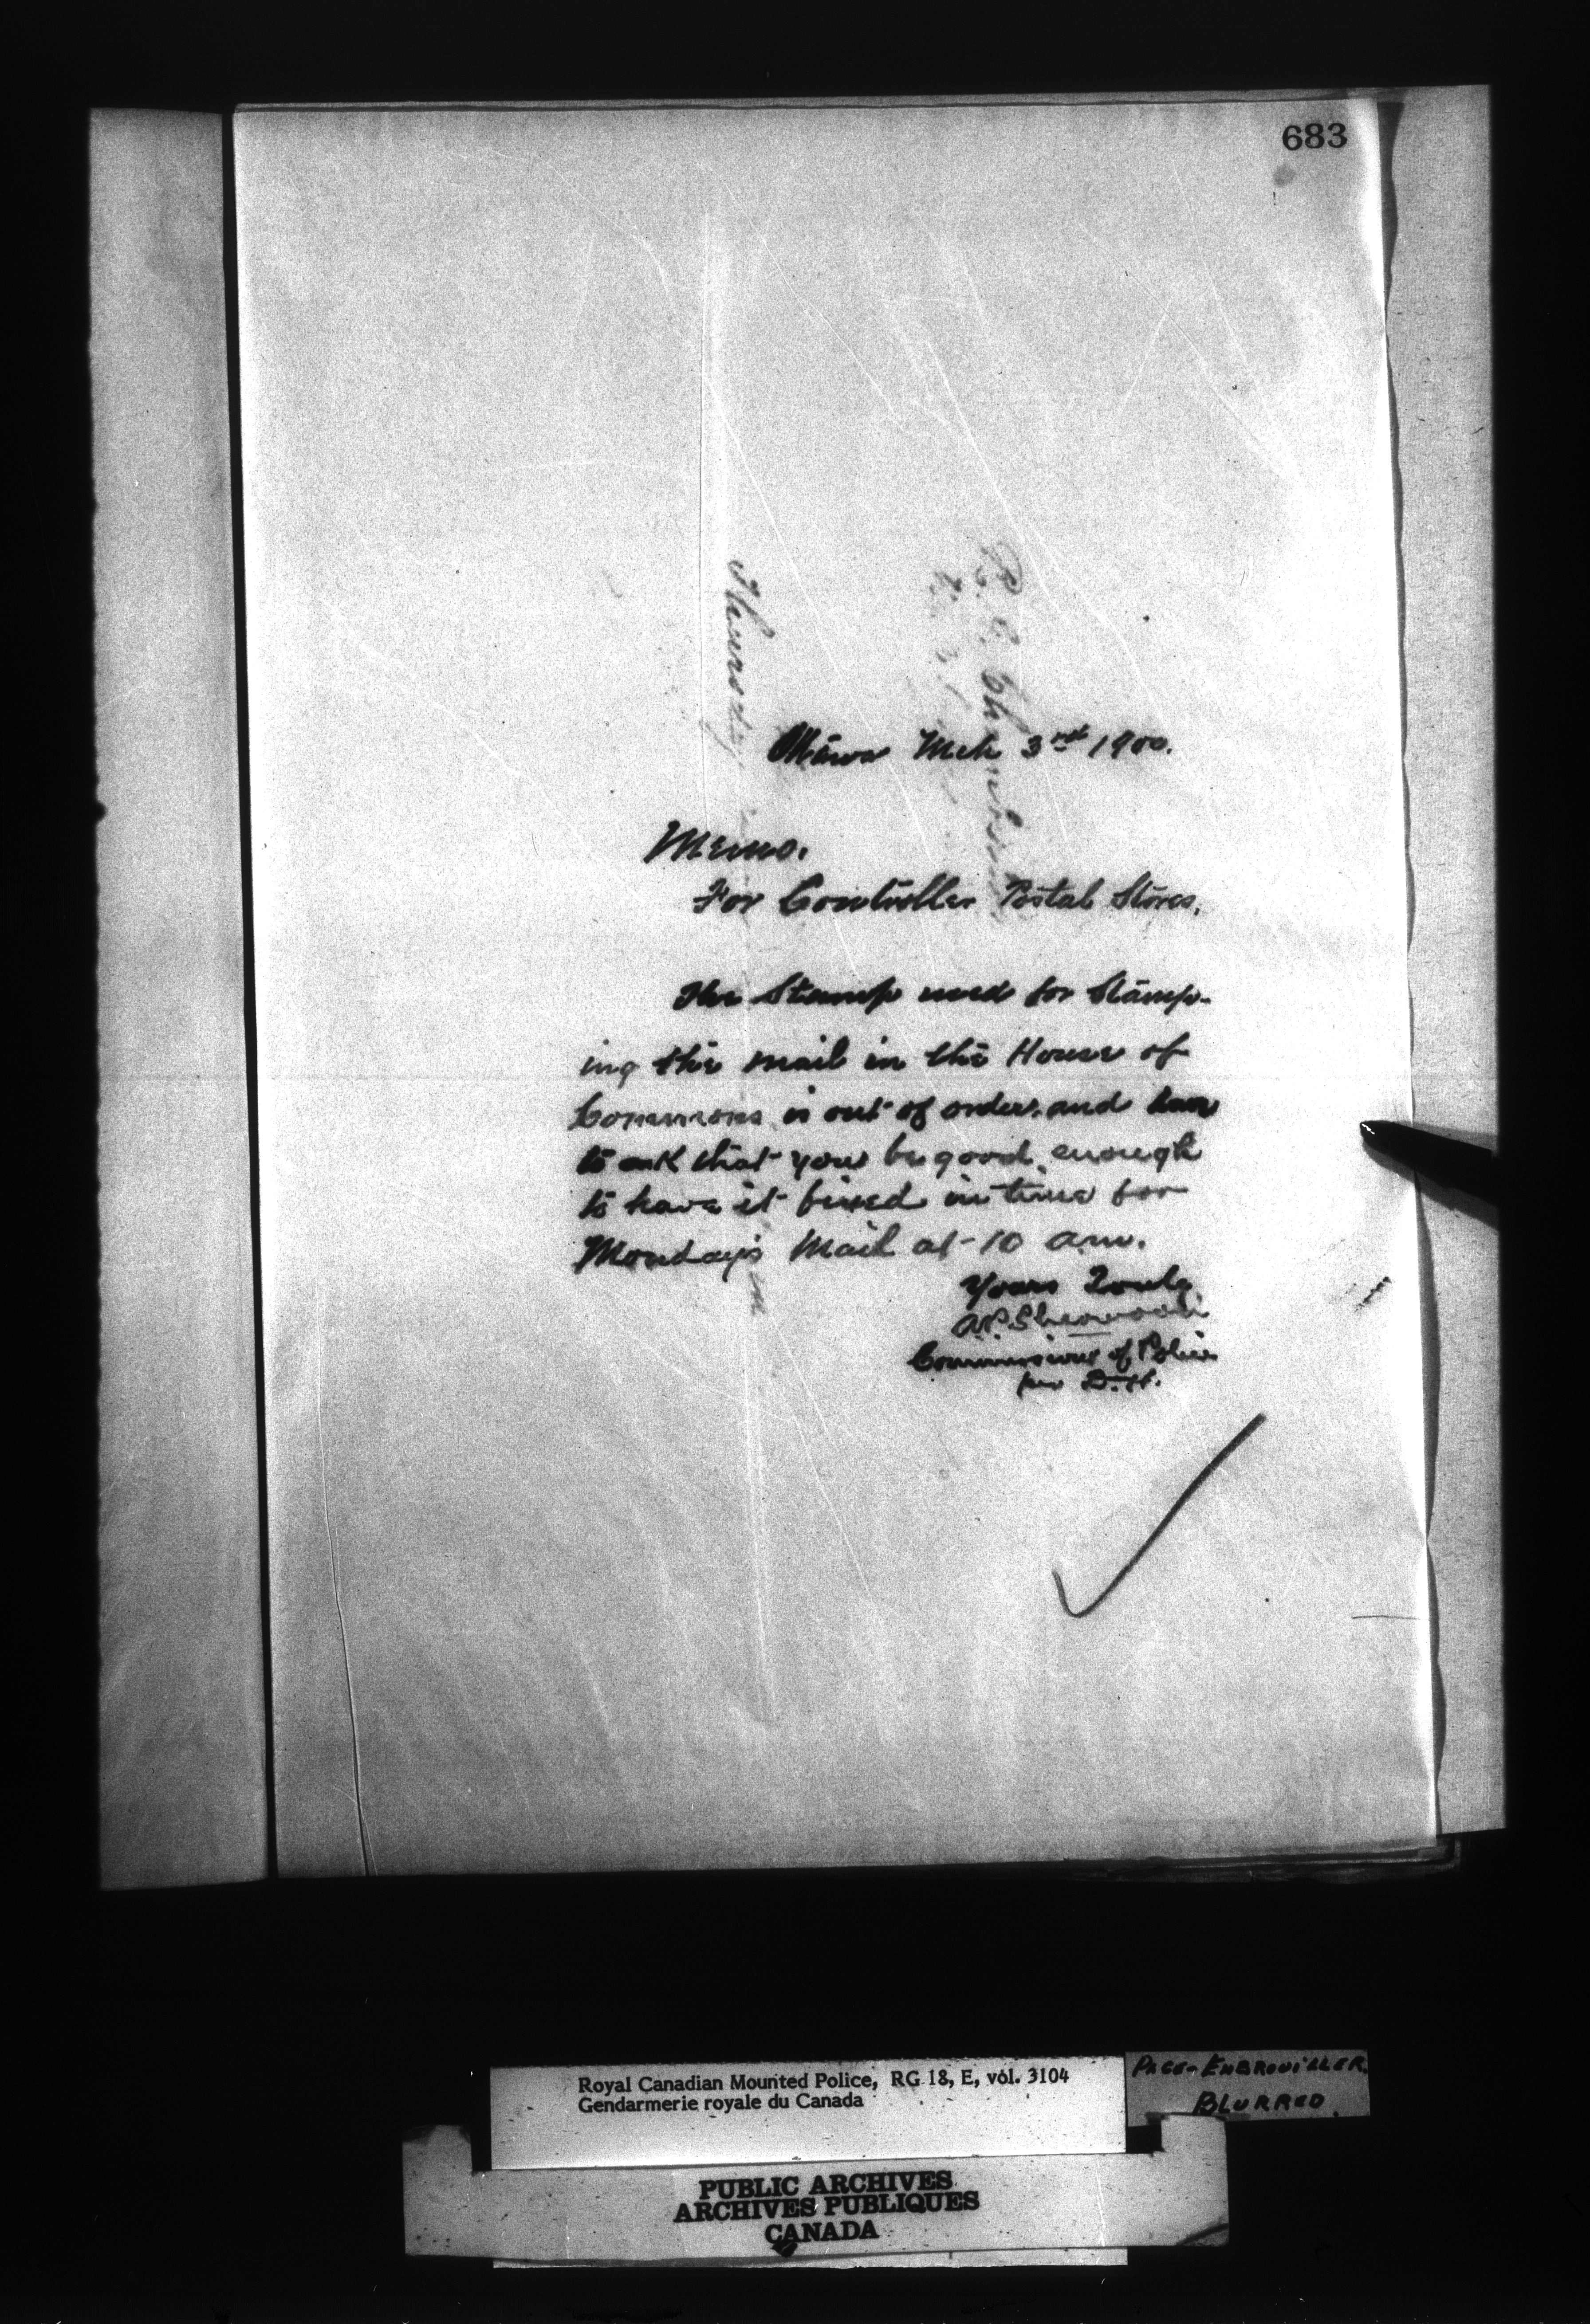 683
Ottawa Mch 3rd 1900.
Memo.
For Controller Postal Stores.
The Stamp used for Stamp-
ing the mail in the House of
Commons is out of order. and have
to ask that you be good enough
to have it fixed in time for
Monday's Mail at 10 am.
Yours Truly
A.P. Sherwood
Commissioner of Police
per D.H.
Thursday
Royal Canadian Mounted Police, RG 18, E, vol. 3104
Gendarmerie royale du Canada
PAGE-EMBROUILLER.
BLURRED
PUBLIC ARCHIVES
ARCHIVES PUBLIQUES
CANADA